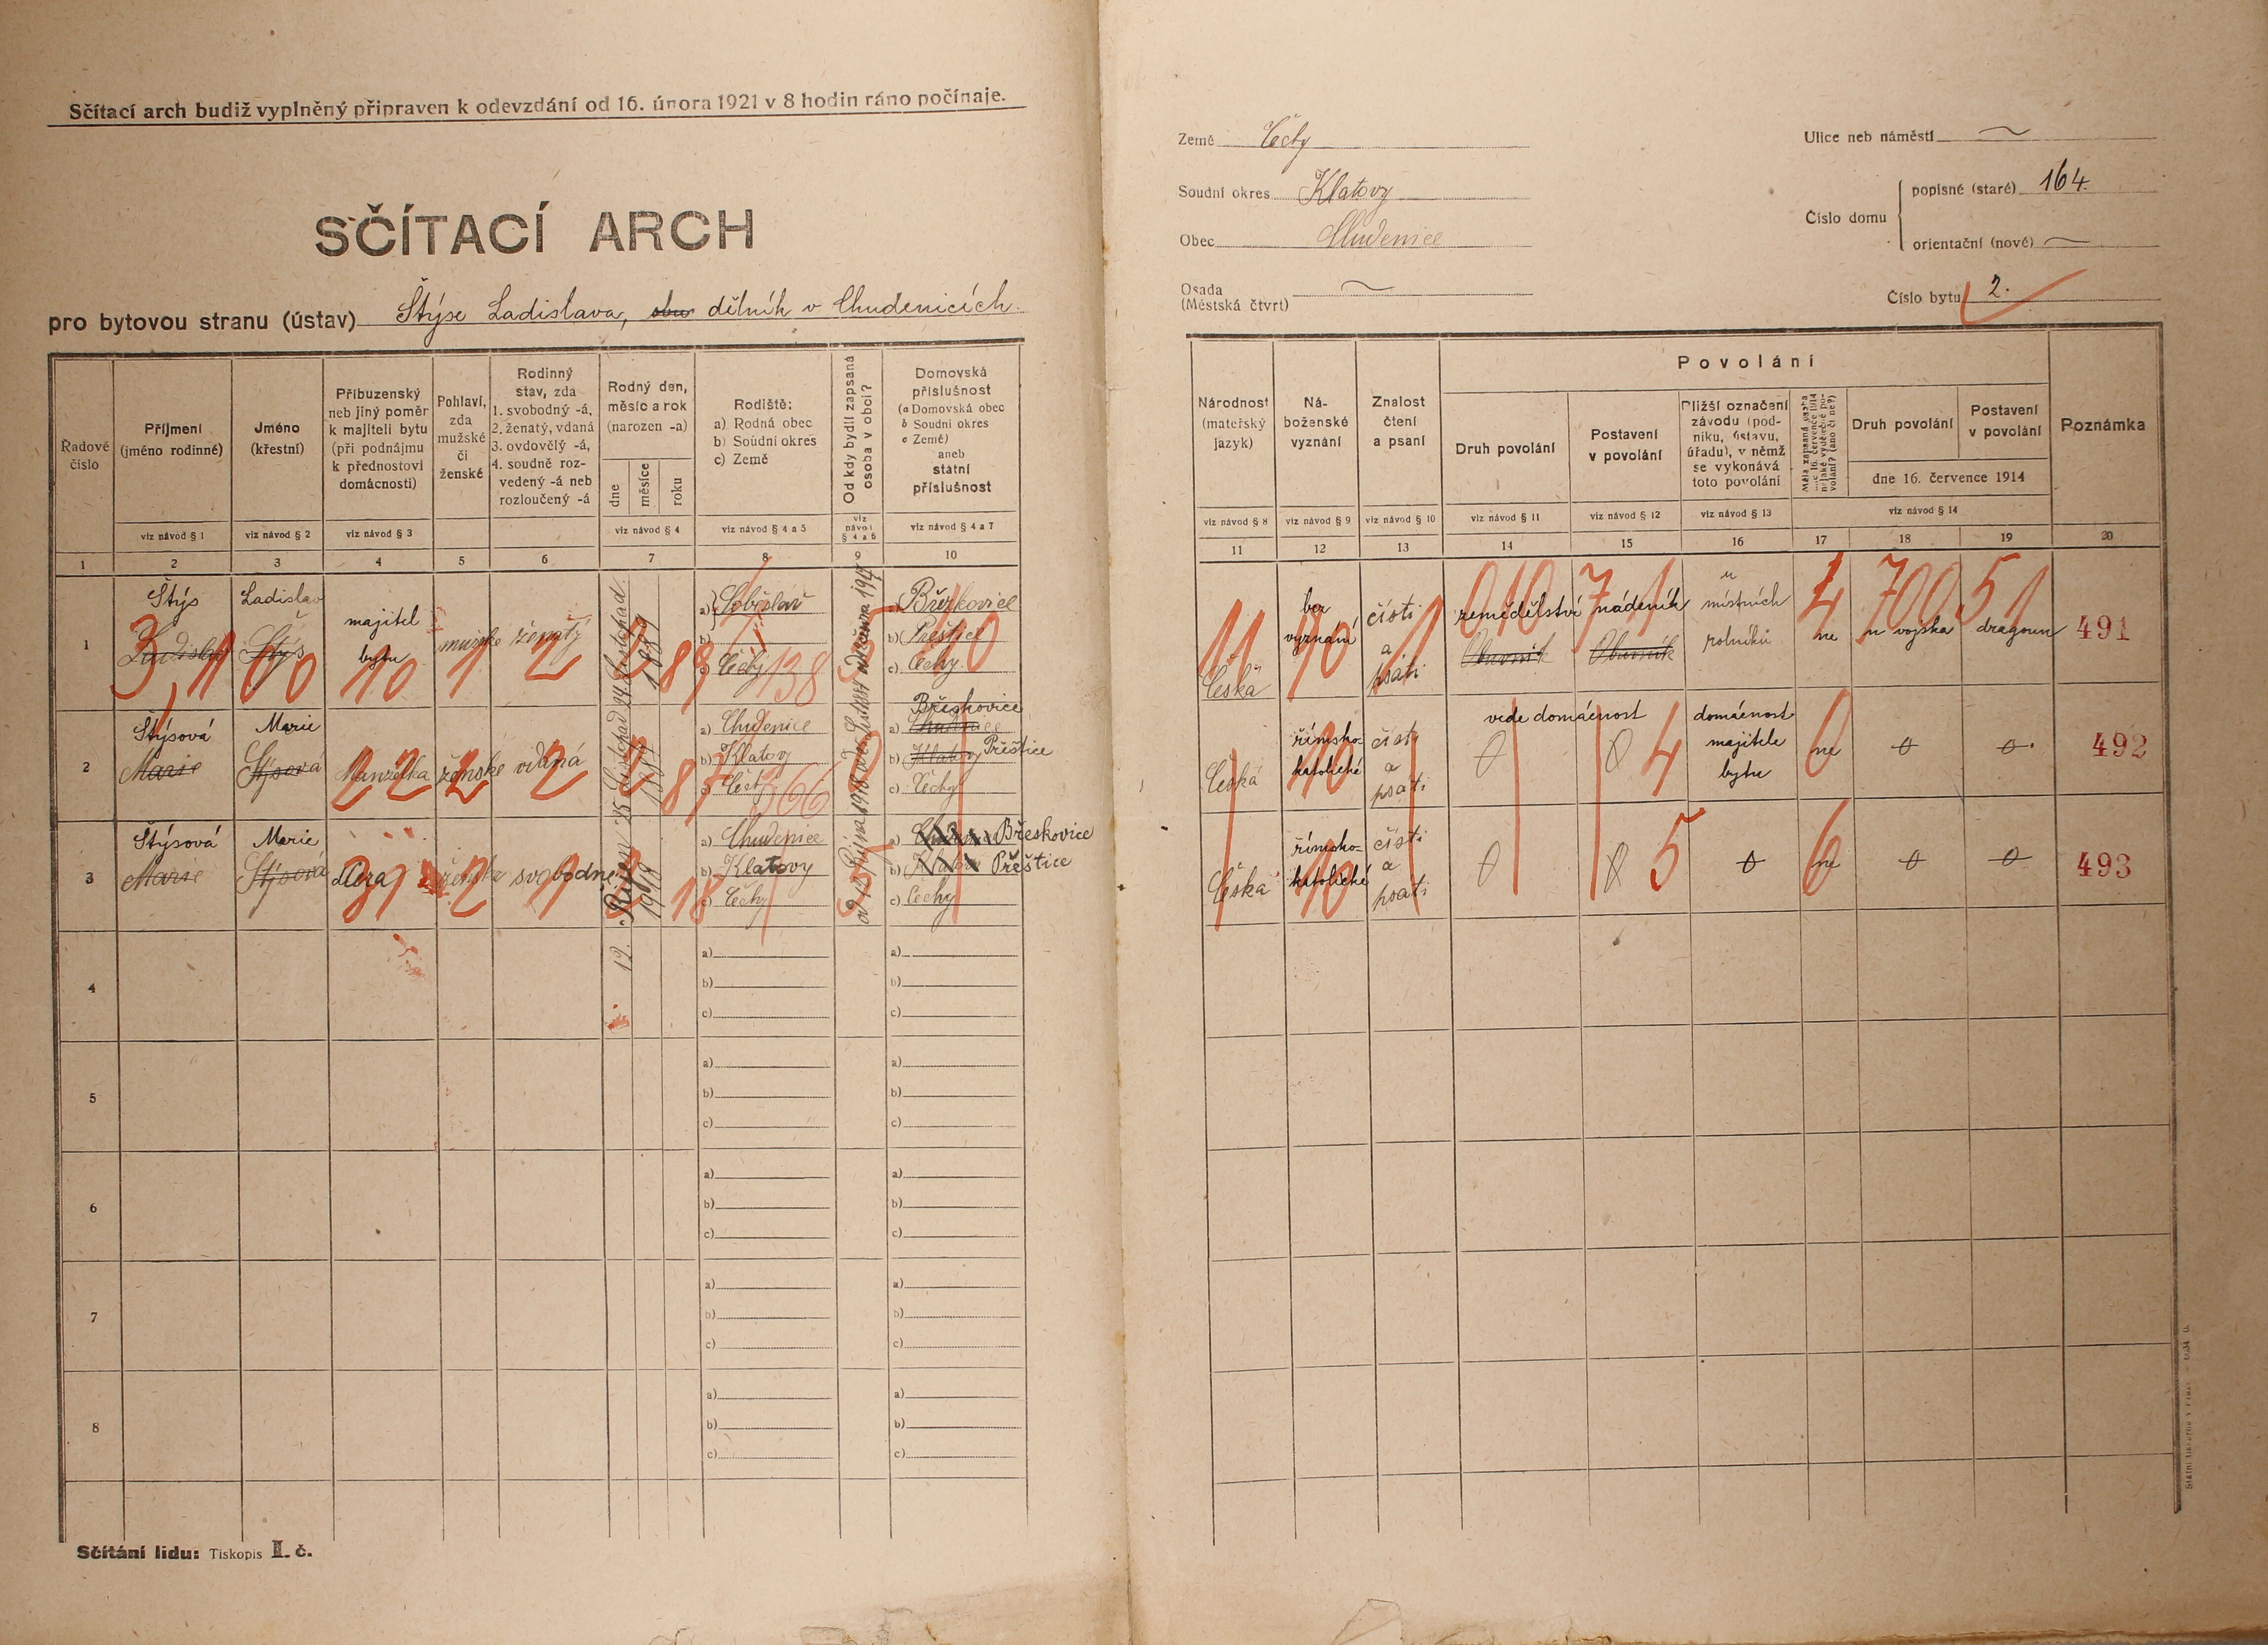 Sčítací arch budiž vyplněný připraven k odevzdání od 16. února 1921 v 8 hodin ráno počínaje.
SČÍTACÍ ARCH
pro bytovou stranu (ústav) Štýse Ladislava, dělník v Chudenicích.
Řadové číslo
Příjmení (jméno rodinné)
Jméno (křestní)
Příbuzenský neb jiný poměr k majiteli bytu (při podnájmu k přednostovi domácnosti)
Pohlaví, zda mužské či ženské
Rodinný stav, zda 1. svobodný -á, 2. ženatý, vdaná 3. ovdovělý -á, 4. soudně rozvedený -á neb rozloučený -á
Rodný den, měsíc a rok (narozen -a)
dne měsíce roku
Rodiště: a) Rodná obec b) Soudní okres c) Země
Od kdy bydlí zapsaná osoba v obci?
Domovská příslušnost (a Domovská obec b Soudní okres c Země) aneb státní příslušnost
viz návod § 1 viz návod § 2 viz návod § 3 viz návod § 4 viz návod § 4 a 5 viz návod § 4 a 6 viz návod § 4 a 7
1 2 3 4 5 6 7 8 9 10
1 Štýs Ladislav majitel bytu mužské ženatý 24 Listopad 1889
Ladislav Štýs
a) Soběslav
b)
c) Čechy
a) Březkovice
b) Přeštice
c) Čechy
2 Štýsová Marie Manželka ženské vdaná 25 Listopad 1887
Marie Štýsová
a) Chudenice
b) Klatovy
c) Čechy
Břeskovice
a) Chudenice
b) Klatovy Přeštice
c) Čechy
3 Štýsová Marie dcera ženské svobodné 12. Říjen 1918
Marie Štýsová
a) Chudenice
b) Klatovy
c) Čechy
od 12 Října 1918
a) Břeskovice
b) Přeštice
c) Čechy
4 a) b) c) a) b) c)
5 a) b) c) a) b) c)
6 a) b) c) a) b) c)
7 a) b) c) a) b) c)
8 a) b) c) a) b) c)
Sčítání lidu: Tiskopis II. č.
Země Čechy
Soudní okres Klatovy
Obec Chudenice
Osada (Městská čtvrť)
Ulice neb náměstí
Číslo domu
popisné (staré) 164.
orientační (nové)
Číslo bytu 2.
Národnost (mateřský jazyk)
Náboženské vyznání
Znalost čtení a psaní
Povolání
Druh povolání
Postavení v povolání
Bližší označení závodu (podniku, ústavu, úřadu), v němž se vykonává toto povolání
Měla zapsaná osoba dne 16. července 1914 nějaké výdělečné povolání? (ano či ne?)
Druh povolání
Postavení v povolání
dne 16. července 1914
Poznámka
viz návod § 8 viz návod § 9 viz návod § 10 viz návod § 11 viz návod § 12 viz návod § 13 viz návod § 14
11 12 13 14 15 16 17 18 19 20
Česká bez vyznání čísti a psáti zemědělství nádeník u místních rolníků ne u vojska dragoun 491
Obuvník Obuvník
Česká římsko-katolické čísti a psáti vede domácnost domácnost majitele bytu ne 0 0 492
Česká římsko-katolické čísti a psáti 0 0 0 ne 0 0 493